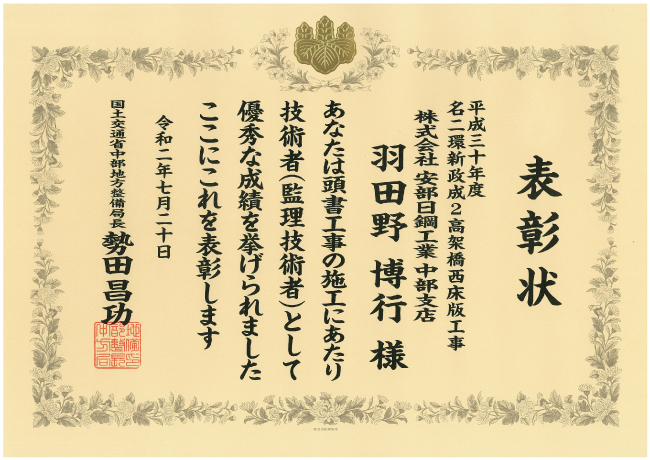 表彰状
平成三十年度
名二環新政成2高架橋西床版工事
株式会社 安部日鋼工業 中部支店
羽田野 博行 様
あなたは頭書工事の施工にあたり
技術者(監理技術者)として
優秀な成績を挙げられました
ここにこれを表彰します
令和二年七月二十日
国土交通省中部地方整備局長 勢田昌功